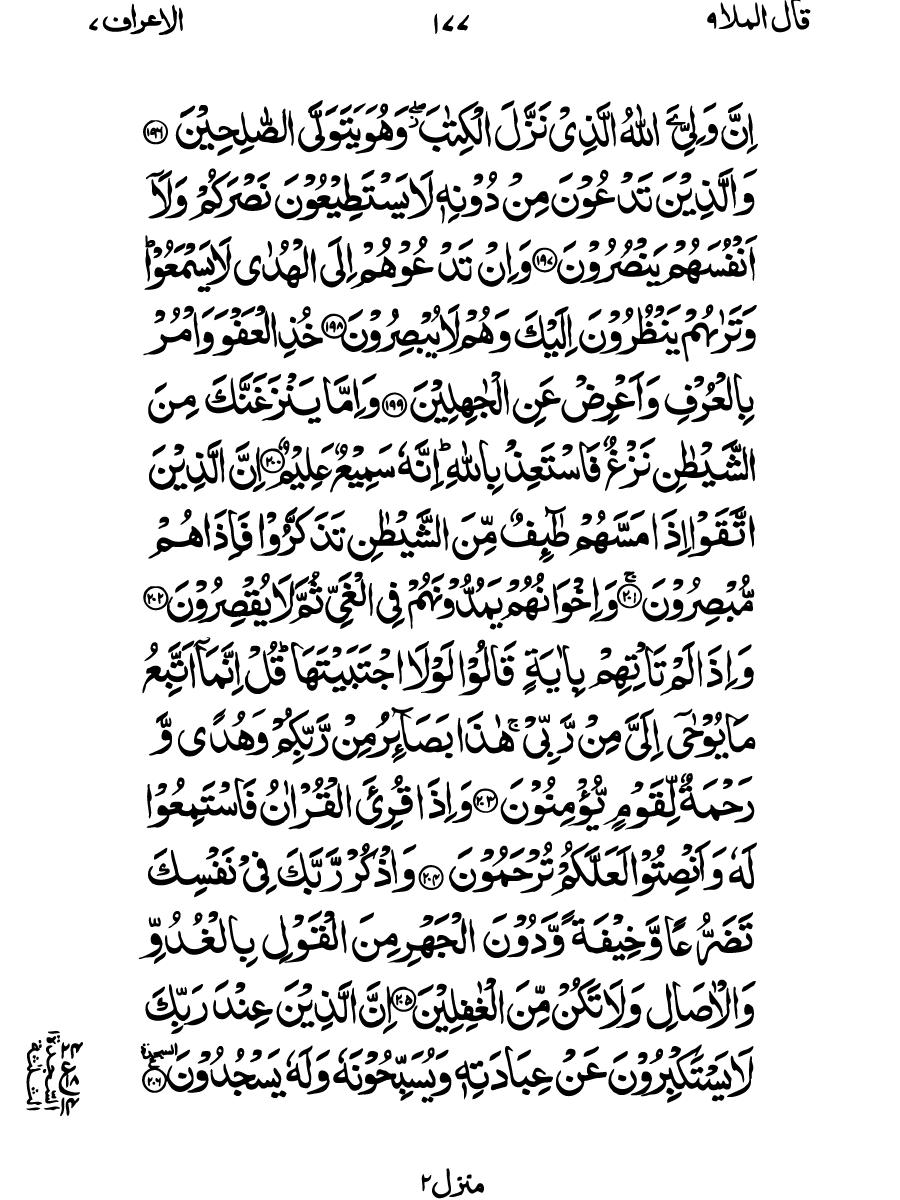 قال الملا ٩
١٧٧
الاعراف ٧
اِنَّ وَلِيِّۦَ اللّٰهُ الَّذِىْ نَزَّلَ الْكِتٰبَ ۖ وَهُوَ يَتَوَلَّى الصّٰلِحِيْنَ ﴿١٩٦﴾
وَالَّذِيْنَ تَدْعُوْنَ مِنْ دُوْنِهٖ لَا يَسْتَطِيْعُوْنَ نَصْرَكُمْ وَلَاۤ
اَنْفُسَهُمْ يَنْصُرُوْنَ ﴿١٩٧﴾ وَاِنْ تَدْعُوْهُمْ اِلَى الْهُدٰى لَا يَسْمَعُوْا ؕ
وَتَرٰىهُمْ يَنْظُرُوْنَ اِلَيْكَ وَهُمْ لَا يُبْصِرُوْنَ ﴿١٩٨﴾ خُذِ الْعَفْوَ وَاْمُرْ
بِالْعُرْفِ وَاَعْرِضْ عَنِ الْجٰهِلِيْنَ ﴿١٩٩﴾ وَاِمَّا يَنْزَغَنَّكَ مِنَ
الشَّيْطٰنِ نَزْغٌ فَاسْتَعِذْ بِاللّٰهِ ؕ اِنَّهٗ سَمِيْعٌ عَلِيْمٌ ﴿٢٠٠﴾ اِنَّ الَّذِيْنَ
اتَّقَوْا اِذَا مَسَّهُمْ طٰٓئِفٌ مِّنَ الشَّيْطٰنِ تَذَكَّرُوْا فَاِذَا هُمْ
مُّبْصِرُوْنَ ﴿٢٠١﴾ۚ وَاِخْوَانُهُمْ يَمُدُّوْنَهُمْ فِى الْغَىِّ ثُمَّ لَا يُقْصِرُوْنَ ﴿٢٠٢﴾
وَاِذَا لَمْ تَاْتِهِمْ بِاٰيَةٍ قَالُوْا لَوْلَا اجْتَبَيْتَهَا ؕ قُلْ اِنَّمَاۤ اَتَّبِعُ
مَا يُوْحٰۤى اِلَىَّ مِنْ رَّبِّىْ ۚ هٰذَا بَصَآئِرُ مِنْ رَّبِّكُمْ وَهُدًى وَّ
رَحْمَةٌ لِّقَوْمٍ يُّؤْمِنُوْنَ ﴿٢٠٣﴾ وَاِذَا قُرِئَ الْقُرْاٰنُ فَاسْتَمِعُوْا
لَهٗ وَاَنْصِتُوْا لَعَلَّكُمْ تُرْحَمُوْنَ ﴿٢٠٤﴾ وَاذْكُرْ رَّبَّكَ فِىْ نَفْسِكَ
تَضَرُّعًا وَّخِيْفَةً وَّدُوْنَ الْجَهْرِ مِنَ الْقَوْلِ بِالْغُدُوِّ
وَالْاٰصَالِ وَلَا تَكُنْ مِّنَ الْغٰفِلِيْنَ ﴿٢٠٥﴾ اِنَّ الَّذِيْنَ عِنْدَ رَبِّكَ
لَا يَسْتَكْبِرُوْنَ عَنْ عِبَادَتِهٖ وَيُسَبِّحُوْنَهٗ وَلَهٗ يَسْجُدُوْنَ ﴿٢٠٦﴾ السجدة
منزل ٢